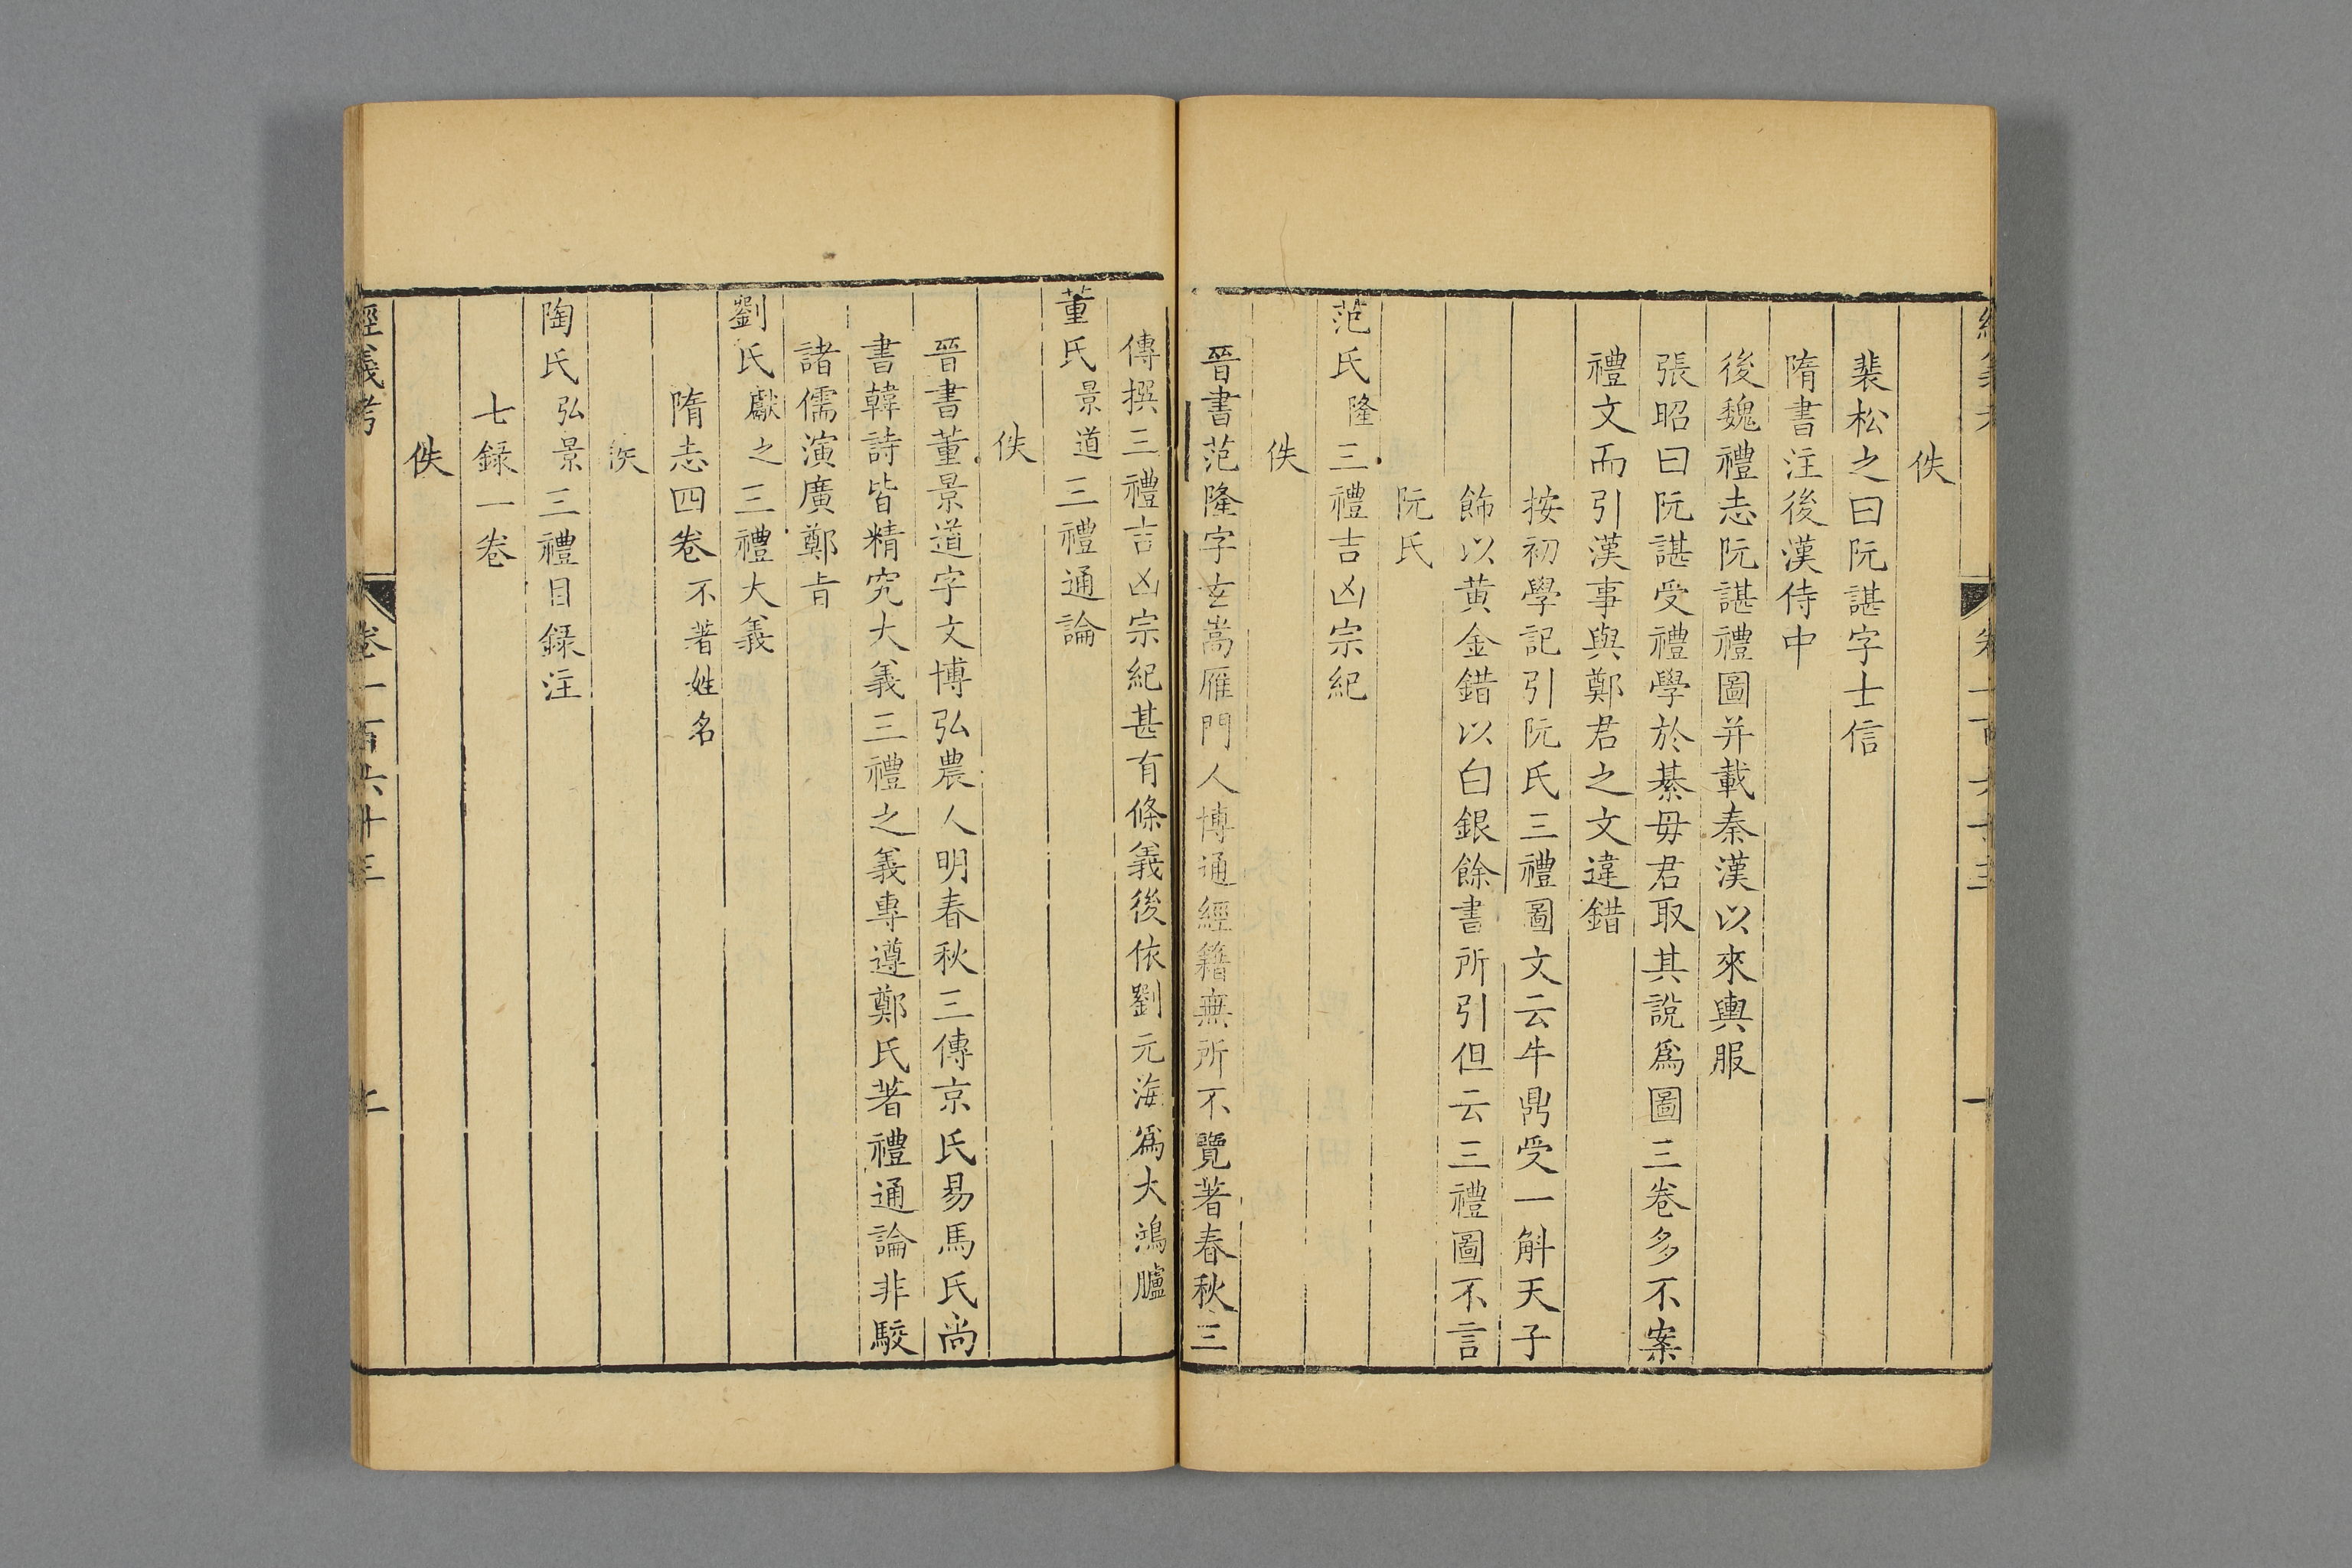 佚
裴松之曰阮諶字士信
隋書注後漢侍中
後魏禮志阮諶禮圖并載秦漢以來輿服
張昭曰阮諶受禮學於綦毋君取其說爲圖三卷多不案
禮文而引漢事與鄭君之文違錯
按初學記引阮氏三禮圖文云牛鼎受一斛天子
飾以黃金錯以白銀餘書所引但云三禮圖不言
阮氏
范氏隆三禮吉凶宗紀
佚
晉書范隆字玄嵩雁門人博通經籍無所不覽著春秋三
傳撰三禮吉凶宗紀甚有條義後依劉元海爲大鴻臚
董氏景道三禮通論
佚
晉書董景道字文博弘農人明春秋三傳京氏易馬氏尚
書韓詩皆精究大義三禮之義專遵鄭氏著禮通論非駮
諸儒演廣鄭㫖
劉氏獻之三禮大義
隋志四卷不著姓名
佚
陶氏弘景三禮目録注
七録一卷
佚
經義考 卷一百六十三 二